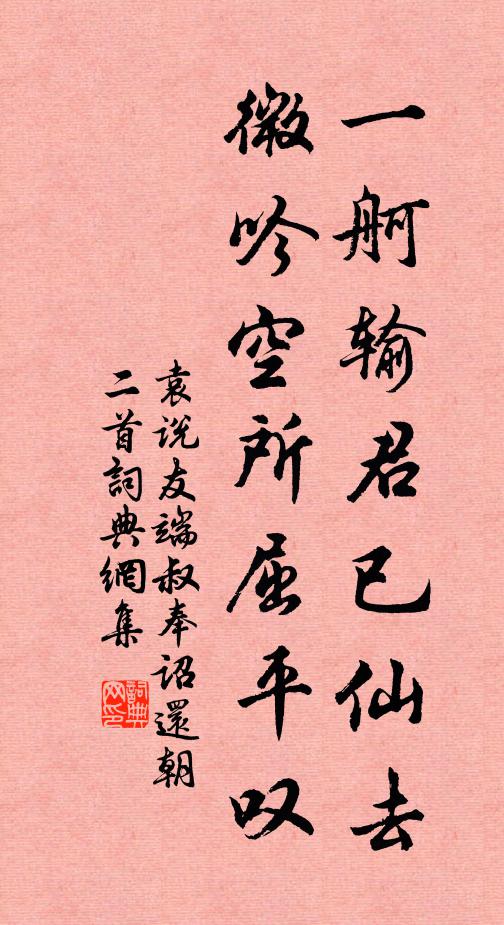 一舸输君已仙去
微吟空所屈平叹
袁说友端叔奉诏還朝
二首詞典網集
詞典网印